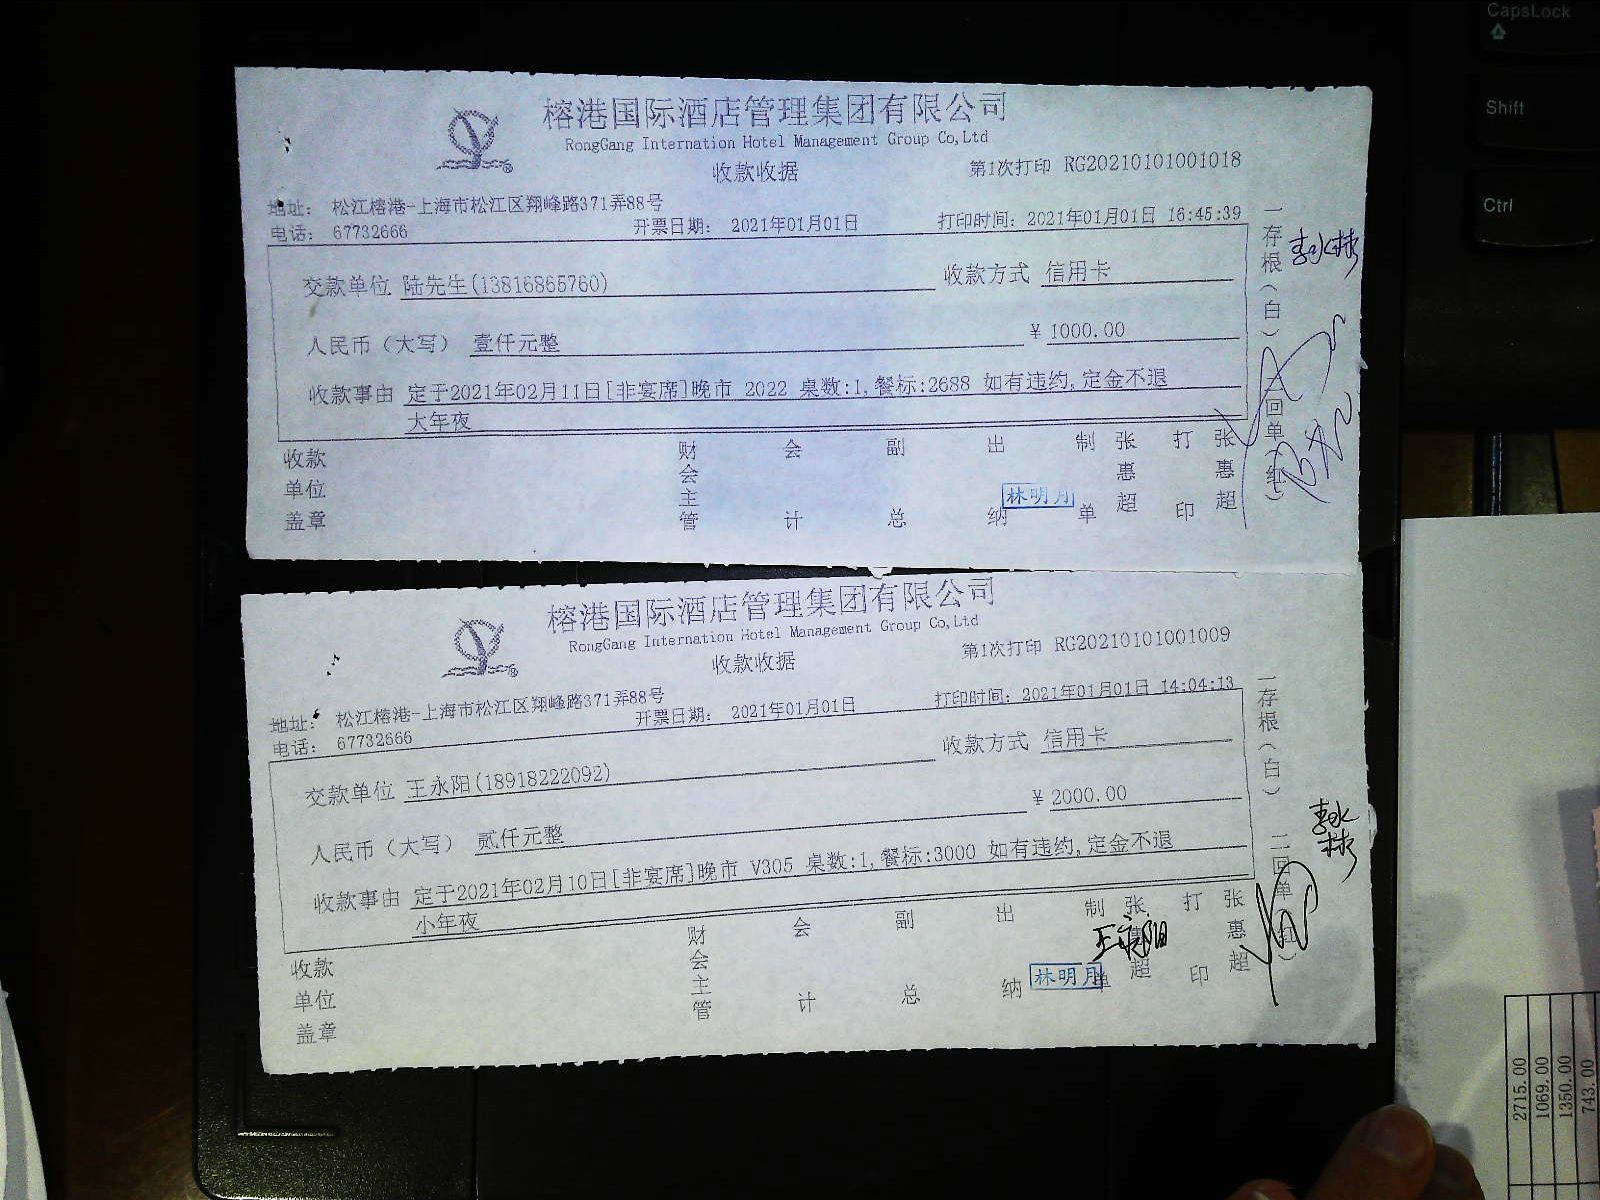 CapsLock
Shift
Ctrl
榕港国际酒店管理集团有限公司
RongGang Internation Hotel Management Group Co,Ltd
收款收据
第1次打印 RG20210101001018
地址： 松江榕港-上海市松江区翔峰路371弄88号
电话： 67732666
开票日期： 2021年01月01日
打印时间：2021年01月01日 16:45:39
交款单位 陆先生(13816865760)
收款方式 信用卡
人民币（大写） 壹仟元整
¥ 1000.00
收款事由 定于2021年02月11日[非宴席]晚市 2022 桌数:1,餐标:2688 如有违约,定金不退
大年夜
收款单位盖章
财会主管
会计
副总
出纳
林明月
制单
张惠超
打印
张惠超
一存根（白）
二回单（红）
榕港国际酒店管理集团有限公司
RongGang Internation Hotel Management Group Co,Ltd
收款收据
第1次打印 RG20210101001009
地址： 松江榕港-上海市松江区翔峰路371弄88号
电话： 67732666
开票日期： 2021年01月01日
打印时间：2021年01月01日 14:04:13
交款单位 王永阳(18918222092)
收款方式 信用卡
人民币（大写） 贰仟元整
¥ 2000.00
收款事由 定于2021年02月10日[非宴席]晚市 V305 桌数:1,餐标:3000 如有违约,定金不退
小年夜
收款单位盖章
财会主管
会计
副总
出纳
林明月
制单
张惠超
王永阳
打印
张惠超
一存根（白）
二回单（红）
2715.00
1069.00
1350.00
743.00